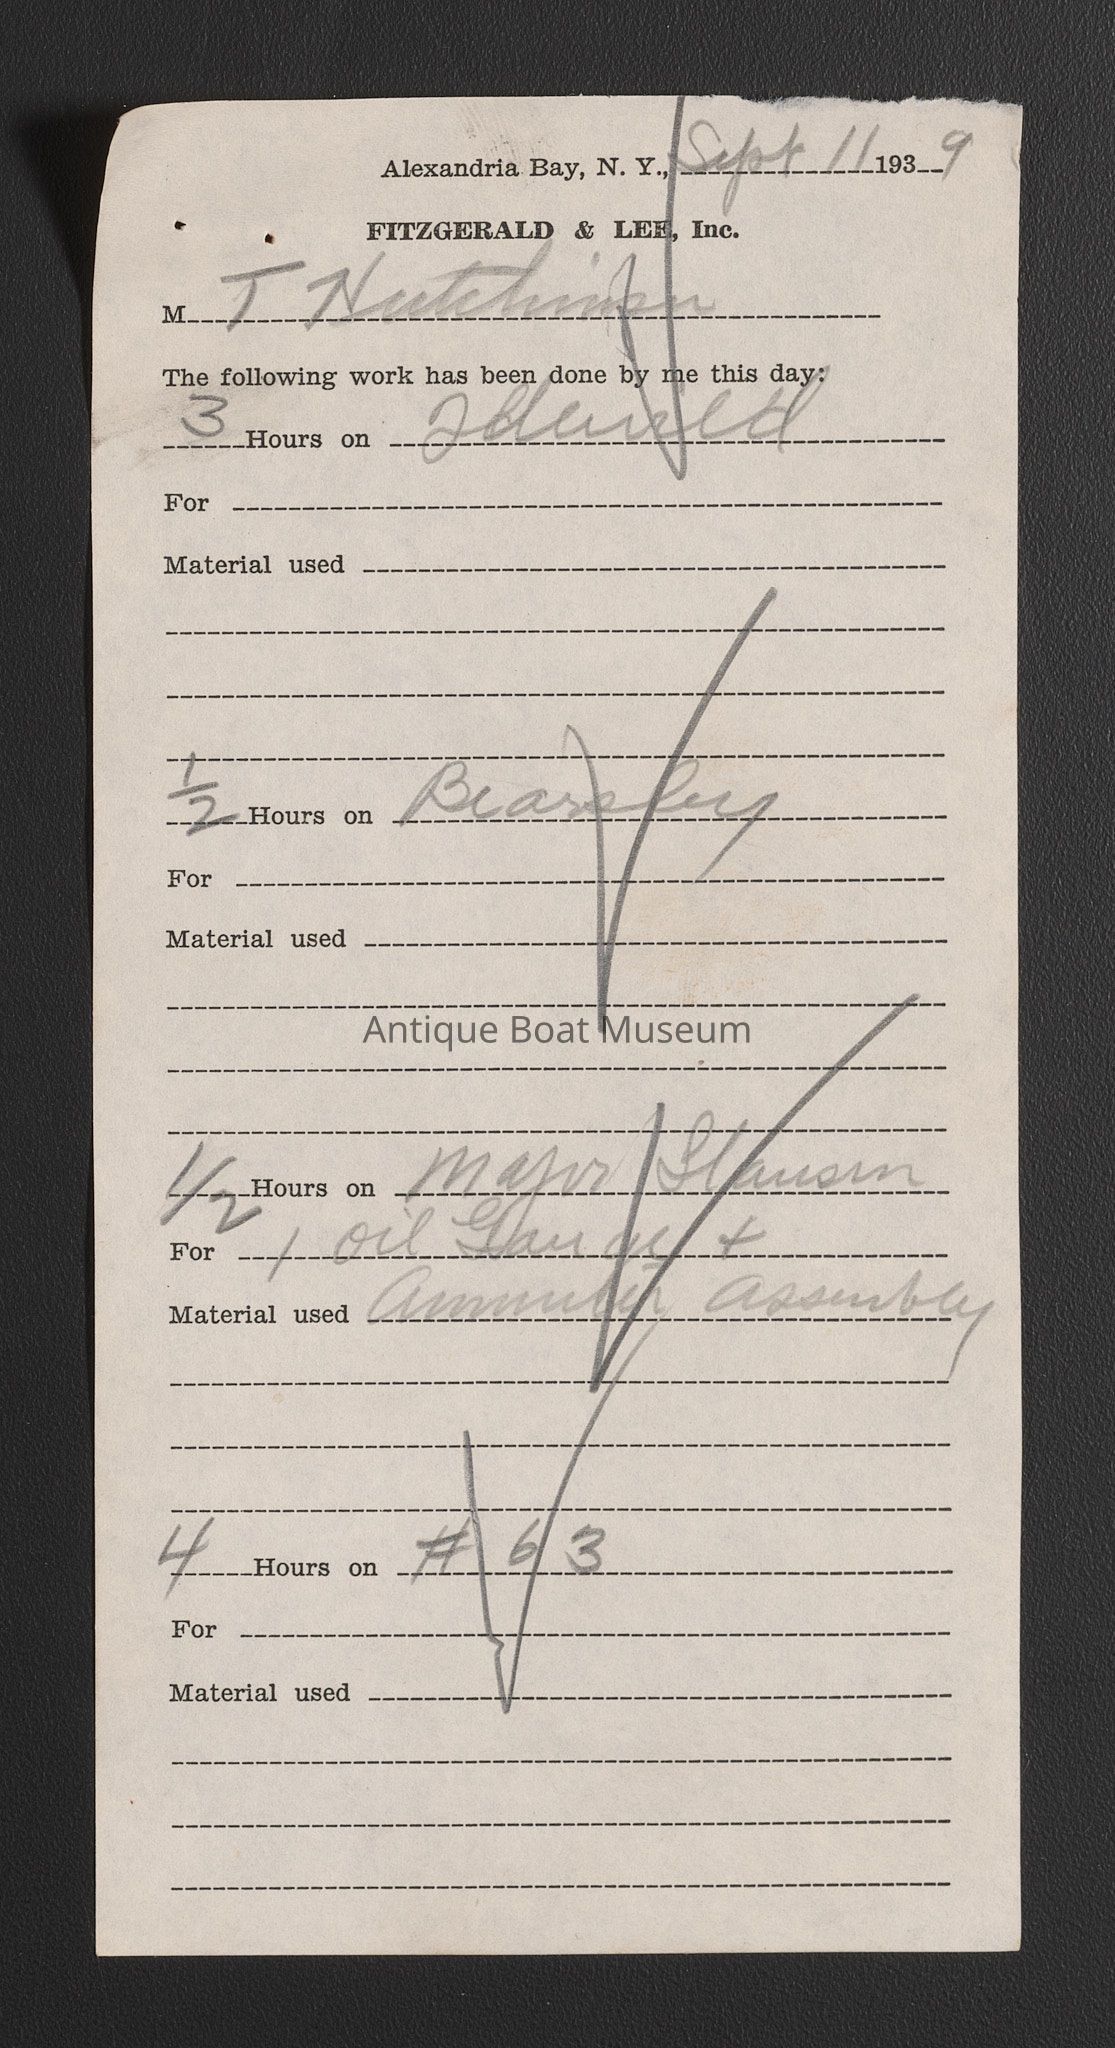 Alexandria Bay, N. Y., Sept 11 1939
FITZGERALD & LEE, Inc.
M T Hutchinson
The following work has been done by me this day:
3 Hours on Idewild
For
Material used
1/2 Hours on Bearsley
For
Material used
Antique Boat Museum
1/2 Hours on Major
For 1 oil Gauge +
Material used Ammeter assembly
4 Hours on # 63
For
Material used